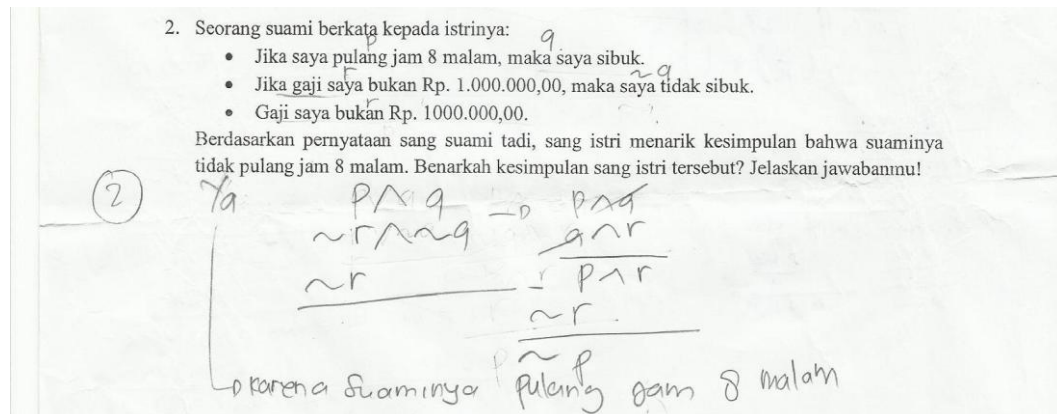 2. Seorang suami berkata kepada istrinya:
p q
• Jika saya pulang jam 8 malam, maka saya sibuk.
r ~q
• Jika gaji saya bukan Rp. 1.000.000,00, maka saya tidak sibuk.
r
• Gaji saya bukan Rp. 1000.000,00.
Berdasarkan pernyataan sang suami tadi, sang istri menarik kesimpulan bahwa suaminya
tidak pulang jam 8 malam. Benarkah kesimpulan sang istri tersebut? Jelaskan jawabanmu!
2 Ya p∧q → p∧q
~r∧~q q∧r
~r p∧r
~r
~p
→ karena suaminya pulang jam 8 malam